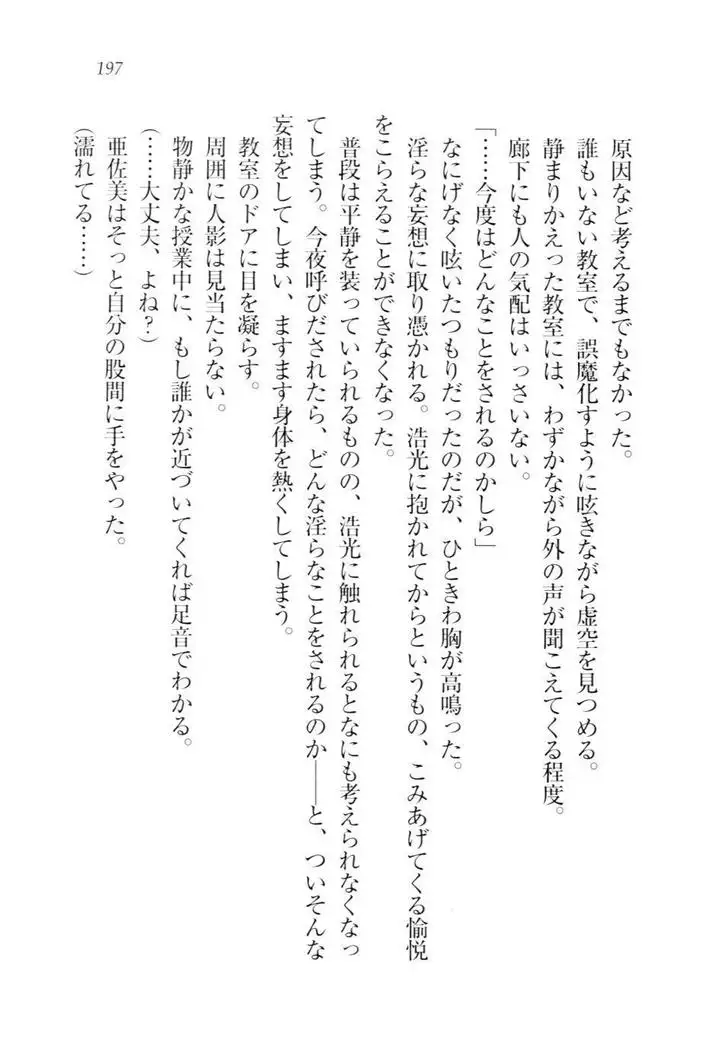 197
原因など考えるまでもなかった。
誰もいない教室で、誤魔化すように呟きながら虚空を見つめる。
静まりかえった教室には、わずかながら外の声が聞こえてくる程度。
廊下にも人の気配はいっさいない。
「……今度はどんなことをされるのかしら」
なにげなく呟いたつもりだったのだが、ひときわ胸が高鳴った。
淫らな妄想に取り憑かれる。浩光に抱かれてからというもの、こみあげてくる愉悦
をこらえることができなくなった。
普段は平静を装っていられるものの、浩光に触れられるとなにも考えられなくなっ
てしまう。今夜呼びだされたら、どんな淫らなことをされるのか――と、ついそんな
妄想をしてしまい、ますます身体を熱くしてしまう。
教室のドアに目を凝らす。
周囲に人影は見当たらない。
物静かな授業中に、もし誰かが近づいてくれば足音でわかる。
(……大丈夫、よね?)
亜佐美はそっと自分の股間に手をやった。
(濡れてる……)